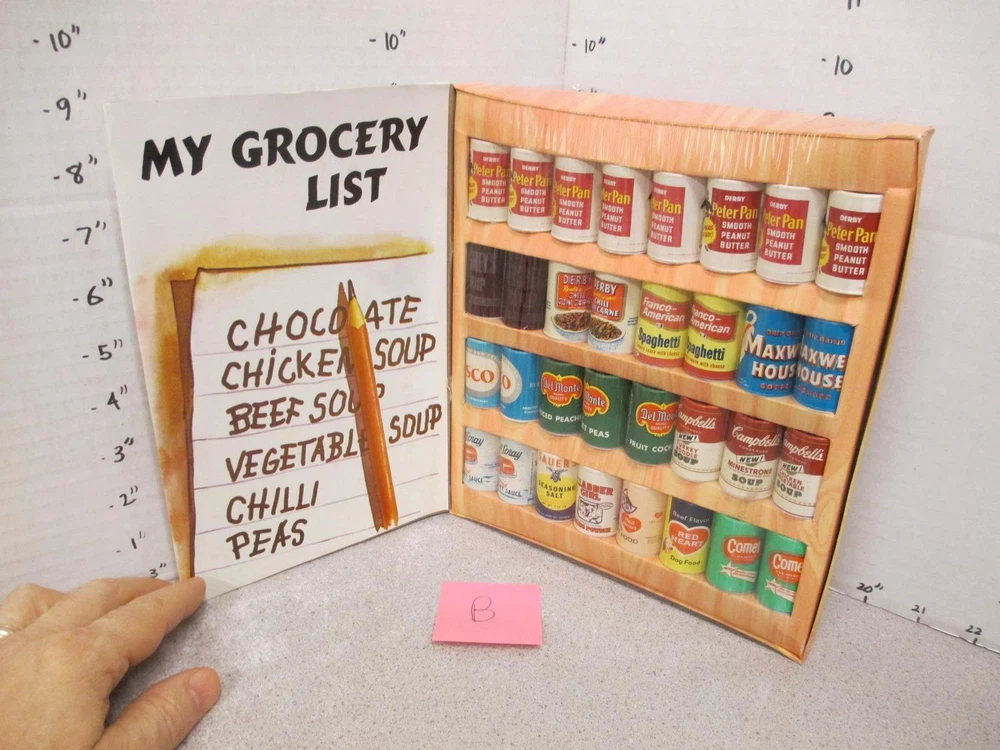 - 10"
- 10"
- 10"
11
- 10
- 9"
- 8"
- 7"
- 6"
- 5"
- 4"
- 3"
- 2"
- 1"
3"
MY GROCERY
LIST
CHOCOLATE
CHICKEN SOUP
BEEF SOUP
VEGETABLE SOUP
CHILLI
PEAS
DERBY Peter Pan SMOOTH PEANUT BUTTER
DERBY Peter Pan SMOOTH PEANUT BUTTER
DERBY Peter Pan SMOOTH PEANUT BUTTER
DERBY Peter Pan SMOOTH PEANUT BUTTER
DERBY Peter Pan SMOOTH PEANUT BUTTER
DERBY Peter Pan SMOOTH PEANUT BUTTER
DERBY Peter Pan SMOOTH PEANUT BUTTER
DERBY Peter Pan SMOOTH PEANUT BUTTER
DERBY
ERBY CHILI CARNE
Franco-American Spaghetti
Franco-American Spaghetti
MAXW HOUS
AXWE OUSE
SCO
O
Del Monte QUALITY CED PEACH
Monte QUALITY T PEAS
Del Mon QUALITY FRUIT COCK
Campbell's NEW! SOUP
Campbell's NEW! MINESTRONE SOUP
Campbell's NEW! VEGETABLE SOUP
SAUCE
SAUCE
AUER SEASONING SALT
ABBER GIRL
OOD
Beef Flavor RED HEART Dog Food
Comet
Come
B
20"
21
22